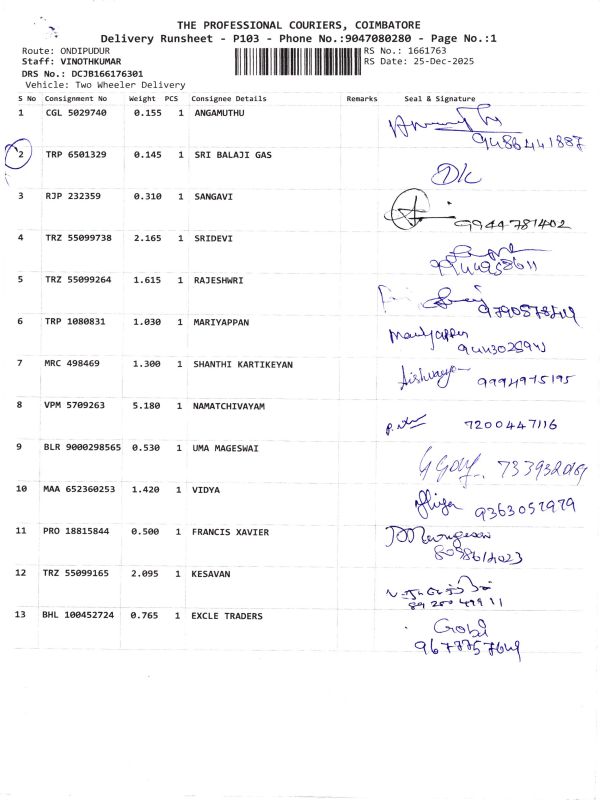 THE PROFESSIONAL COURIERS, COIMBATORE
Delivery Runsheet - P103 - Phone No.:9047080280 - Page No.:1
Route: ONDIPUDUR RS No.: 1661763
Staff: VINOTHKUMAR RS Date: 25-Dec-2025
DRS No.: DCJB166176301
Vehicle: Two Wheeler Delivery
S No Consignment No Weight PCS Consignee Details Remarks Seal & Signature
1 CGL 5029740 0.155 1 ANGAMUTHU
9486441887
2 TRP 6501329 0.145 1 SRI BALAJI GAS
3 RJP 232359 0.310 1 SANGAVI
9944781402
4 TRZ 55099738 2.165 1 SRIDEVI
9944958611
5 TRZ 55099264 1.615 1 RAJESHWRI
6 TRP 1080831 1.030 1 MARIYAPPAN
Mariyappan
7 MRC 498469 1.300 1 SHANTHI KARTIKEYAN
Aishwarya 9994975195
8 VPM 5709263 5.180 1 NAMATCHIVAYAM
7200447116
9 BLR 9000298565 0.530 1 UMA MAGESWAI
10 MAA 652360253 1.420 1 VIDYA
9363057979
11 PRO 18815844 0.500 1 FRANCIS XAVIER
12 TRZ 55099165 2.095 1 KESAVAN
13 BHL 100452724 0.765 1 EXCLE TRADERS